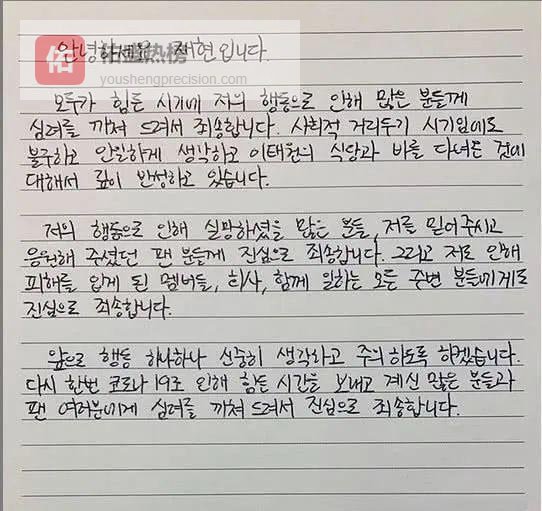 안녕하세요 재현입니다.
佑 佑盛热榜
youshengprecision.com
모두가 힘든 시기에 저의 행동으로 인해 많은 분들께
심려를 끼쳐 드려서 죄송합니다. 사회적 거리두기 시기임에도
불구하고 안일하게 생각하고 이태원의 식당과 바를 다녀온 것에
대해서 깊이 반성하고 있습니다.
저의 행동으로 인해 실망하셨을 많은 분들, 저를 믿어주시고
응원해 주셨던 팬 분들께 진심으로 죄송합니다. 그리고 저로 인해
피해를 입게 된 멤버들, 회사, 함께 일하는 모든 주변 분들에게도
진심으로 죄송합니다.
앞으로 행동 하나하나 신중히 생각하고 주의 하도록 하겠습니다.
다시 한번 코로나 19로 인해 힘든 시간을 보내고 계신 많은 분들과
팬 여러분에게 심려를 끼쳐 드려서 진심으로 죄송합니다.